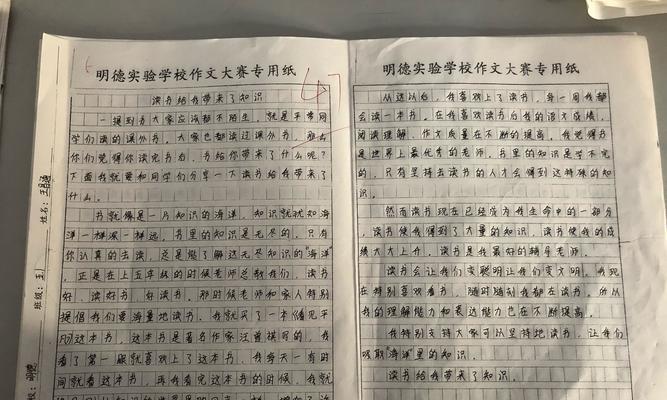 明德实验学校作文大赛专用纸
47
读书给我带来了知识
一提到书大家应该都不陌生,就是平常同
学们读的课外书。大家也都读过课外书。那么
你们觉得你读完书后,书给你带来了什么呢?
下面我就要和同学们分享一下读书给我带来了
什么。
书就像是一片知识的海洋,知识就犹如海
洋一样深一样远。书里的知识是无尽的,只有
你认真的去读,总是能了解这无尽知识的"海洋"
正是在上五年级的时候老师总教我们,读书
好、读好书、好读书。那时候老师和家人特别
提倡我们要海量地读书。我就买了一本《
这本书,这本书是著名作家汪曾祺写的,我
看了第一眼就喜欢上了这本书。我每天一有时
间就看这本书。再我看完这本书的时候,我就
姓名:
班级:五1
校:明德
明德实验学校作文大赛专用纸
从这以后,我喜欢上了读书,每一周我都
会读一本书。在我喜欢读书后我的语文成绩、
阅读理解、作文质量在不断的提高。我觉得书
是世界上最优秀的老师,书里的知识是学不完
的,只有坚持去读书的人才会得到这特殊的知
识。
然而读书现在已经成为我生命中的一部分
,读书使我得到了大量的知识,读书使我的成
绩大大上升,读书是我最好的辅导老师。
读书会让我们变聪明让我们变文明。我现
在特别喜欢看书,随时随刻我都在读书。所以
我的理解能力和表达能力也在不断提高。
我特别支持大家可以坚持地读书,让我们
吸取"海洋"里的知识。
读书给我带来了知识。